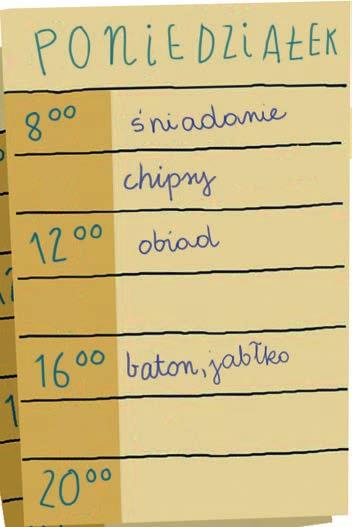 PONiEDZiAŁEK
8⁰⁰ śniadanie
chipsy
12⁰⁰ obiad
16⁰⁰ baton, jabłko
20⁰⁰